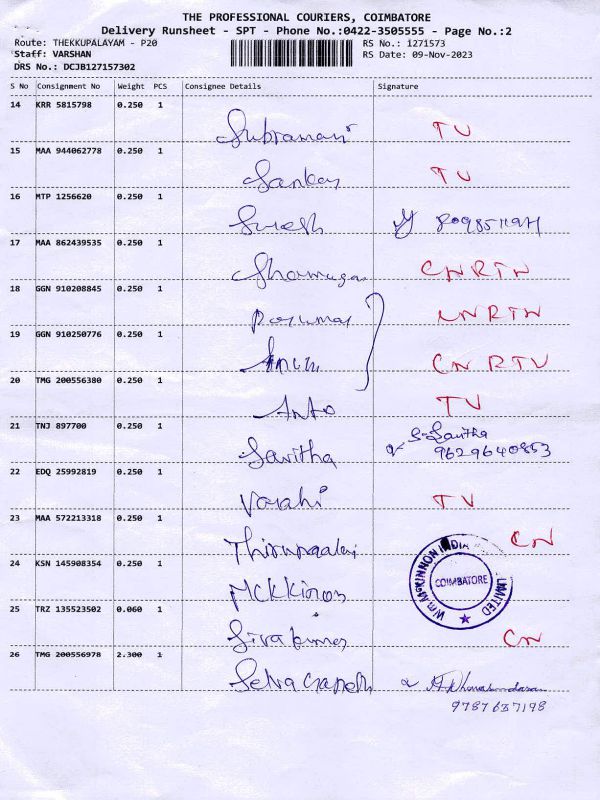 THE PROFESSIONAL COURIERS, COIMBATORE
Delivery Runsheet - SPT - Phone No.:0422-3505555 - Page No.:2
Route: THEKKUPALAYAM - P20 RS No.: 1271573
Staff: VARSHAN RS Date: 09-Nov-2023
DRS No.: DCJB127157302
S No Consignment No Weight PCS Consignee Details Signature
14 KRR 5815798 0.250 1
Subramani TV
15 MAA 944062778 0.250 1
Sankar TV
16 MTP 1256620 0.250 1
Suresh
17 MAA 862439535 0.250 1
CNRTN
18 GGN 910208845 0.250 1
19 GGN 910250776 0.250 1
20 TMG 200556380 0.250 1
Anto TV
21 TNJ 897700 0.250 1
S. Savitha
Savitha 9629640853
22 EDQ 25992819 0.250 1
Varahi TV
23 MAA 572213318 0.250 1
CN
24 KSN 145908354 0.250 1
Wm MCKINNON INDIA LIMITED
COIMBATORE
25 TRZ 135523502 0.060 1
Sivakumar CN
26 TMG 200556978 2.300 1
Selva Ganesh
9787637198